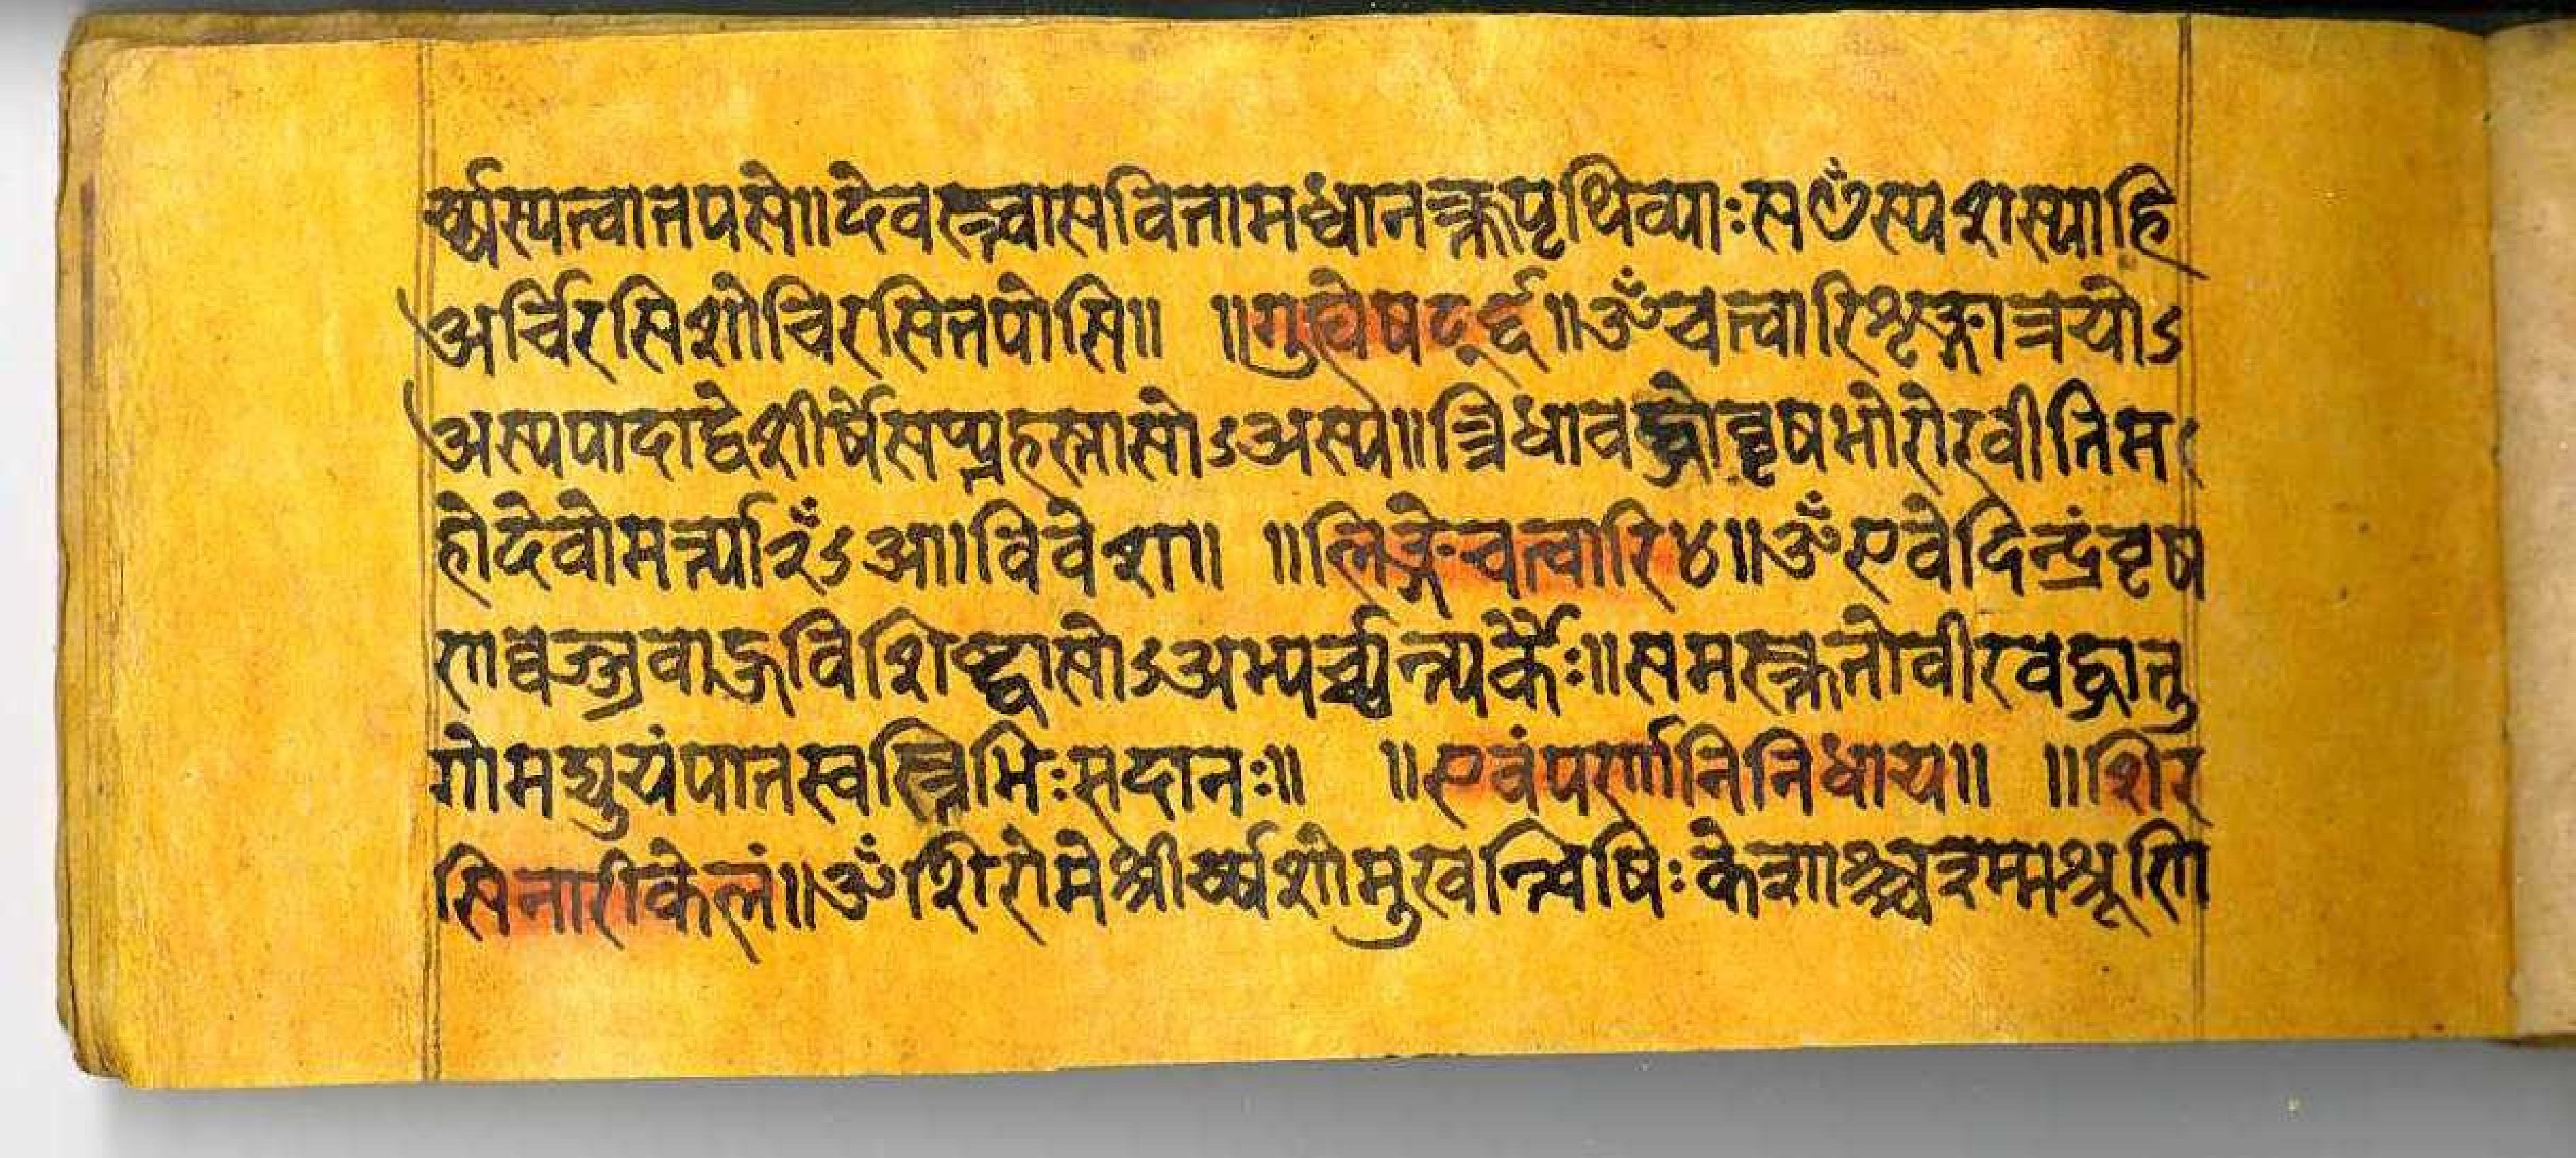 र्य्यस्यत्वातपसे॥देवस्त्वासवितामध्वानक्तुपृथिव्याःसꣳस्पृशस्पाहि
अर्चिरसिशोचिरसितपोसि॥ ॥गुह्येषदर्द्ध॥ॐचत्वारिशृङ्गात्रयोऽ
अस्यपादाद्वेशीर्षेसप्प्तहस्तासोऽअस्य॥त्रिधावद्धोवृषभोरोरवीतिम
होदेवोमर्त्त्याँ२ऽआ।विवेश॥ ॥लिङ्गेचत्वारि४॥ॐएवेदिन्द्रंवृष
णंवज्ज्रवाहुंवशिष्ठासोऽअभ्यर्च्चन्त्यर्कैः॥सनस्तुतोवीरवद्धातु
गोमद्यूयंपातस्वस्तिभिःसदानः॥ ॥एवंपर्णानिनिधाय॥ ॥शिर
सिनारीकेलं॥ॐशिरोमेश्रीर्य्यशोमुखन्त्विषिःकेशाश्च्चश्मश्रूणि